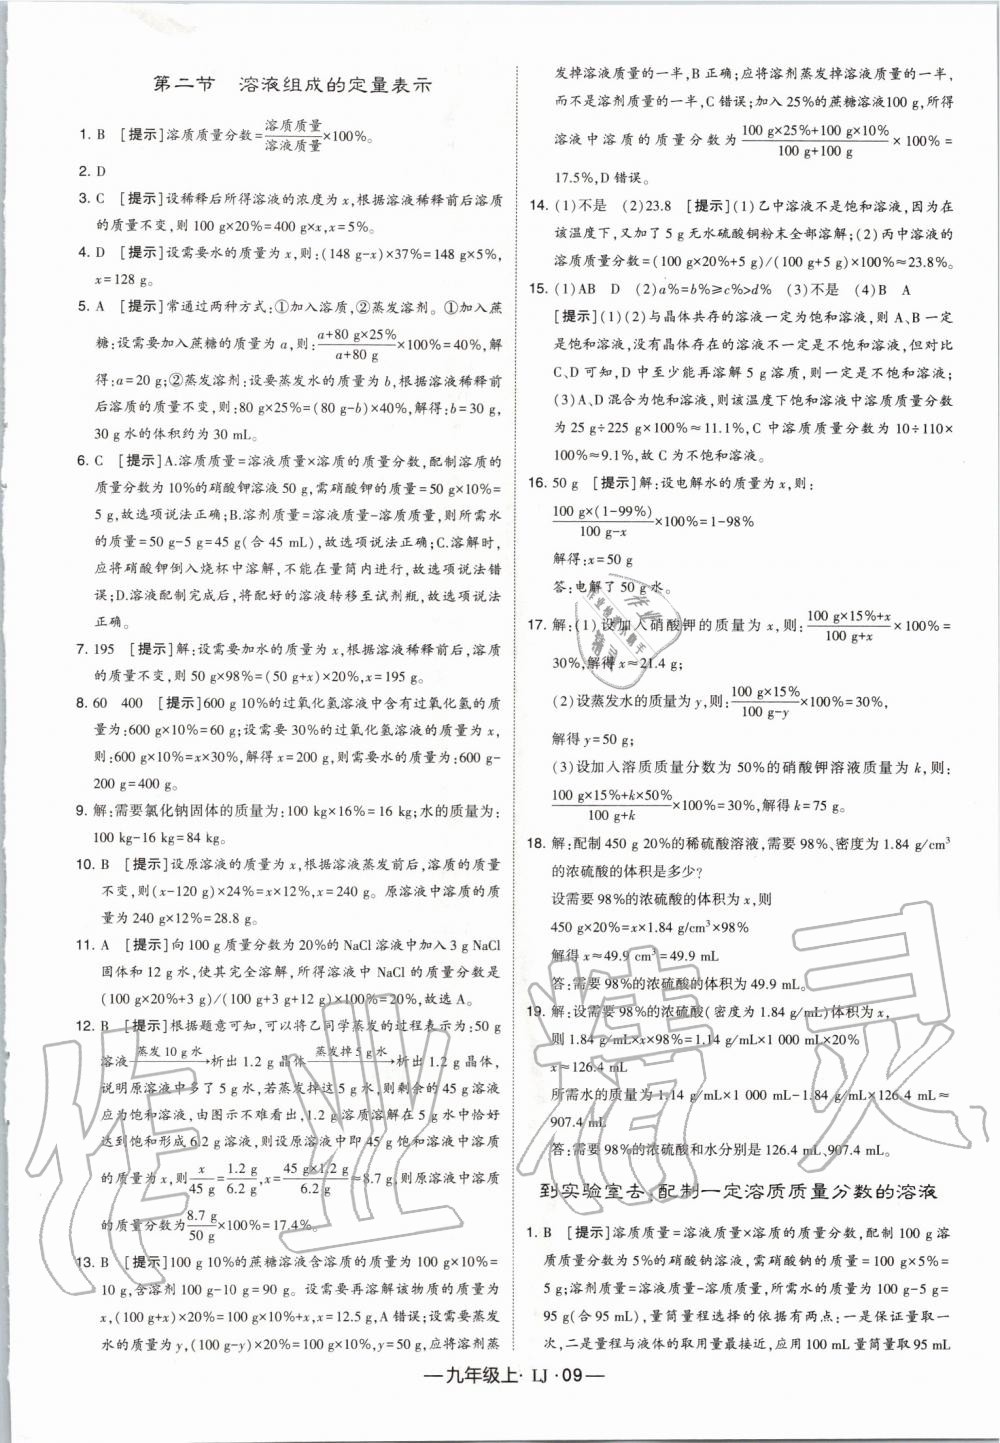 第二节 溶液组成的定量表示
1. B [提示]溶质质量分数=溶质质量/溶液质量×100%。
2. D
3. C [提示]设稀释后所得溶液的浓度为x,根据溶液稀释前后溶质
的质量不变,则100 g×20%=400 g×x,x=5%。
4. D [提示]设需要水的质量为x,则:(148 g-x)×37%=148 g×5%,
x=128 g。
5. A [提示]常通过两种方式:①加入溶质,②蒸发溶剂。①加入蔗
糖:设需要加入蔗糖的质量为a,则:(a+80 g×25%)/(a+80 g)×100%=40%,解
得:a=20 g;②蒸发溶剂:设要蒸发水的质量为b,根据溶液稀释前
后溶质的质量不变,则:80 g×25%=(80 g-b)×40%,解得:b=30 g,
30 g水的体积约为30 mL。
6. C [提示]A.溶质质量=溶液质量×溶质的质量分数,配制溶质的
质量分数为10%的硝酸钾溶液50 g,需硝酸钾的质量=50 g×10%=
5 g,故选项说法正确;B.溶剂质量=溶液质量-溶质质量,则所需水
的质量=50 g-5 g=45 g(合45 mL),故选项说法正确;C.溶解时,
应将硝酸钾倒入烧杯中溶解,不能在量筒内进行,故选项说法错
误;D.溶液配制完成后,将配好的溶液转移至试剂瓶,故选项说法
正确。
7. 195 [提示]解:设需要加水的质量为x,根据溶液稀释前后,溶质
的质量不变,则50 g×98%=(50 g+x)×20%,x=195 g。
8. 60 400 [提示]600 g 10%的过氧化氢溶液中含有过氧化氢的质
量为:600 g×10%=60 g;设需要30%的过氧化氢溶液的质量为x,
则:600 g×10%=x×30%,解得x=200 g,则需要水的质量为:600 g-
200 g=400 g。
9. 解:需要氯化钠固体的质量为:100 kg×16%=16 kg;水的质量为:
100 kg-16 kg=84 kg。
10. B [提示]设原溶液的质量为x,根据溶液蒸发前后,溶质的质量
不变,则(x-120 g)×24%=x×12%,x=240 g。原溶液中溶质的质
量为240 g×12%=28.8 g。
11. A [提示]向100 g质量分数为20%的NaCl溶液中加入3 g NaCl
固体和12 g水,使其完全溶解,所得溶液中NaCl的质量分数是
(100 g×20%+3 g)/(100 g+3 g+12 g)×100%=20%,故选A。
12. B [提示]根据题意可知,可以将乙同学蒸发的过程表示为:50 g
溶液 蒸发10 g水→ 析出1.2 g晶体 蒸发掉5 g水→ 析出1.2 g晶体,
说明原溶液中多了5 g水,若蒸发掉这5 g水,则剩余的45 g溶液
应为饱和溶液,由图示不难看出,1.2 g溶质溶解在5 g水中恰好
达到饱和形成6.2 g溶液,则设原溶液中即45 g饱和溶液中溶质
的质量为x,则x/45 g=1.2 g/6.2 g,x=45 g×1.2 g/6.2 g≈8.7 g,则原溶液中溶质
的质量分数为8.7 g/50 g×100%=17.4%。
13. B [提示]100 g 10%的蔗糖溶液含溶质的质量为100 g×10%=
10 g,含溶剂100 g-10 g=90 g。设需要再溶解该物质的质量为
x,(100 g+x)×20%=100 g×10%+x,x=12.5 g,A错误;设需要蒸发
水的质量为y,(100 g-y)×20%=100 g×10%,y=50 g,应将溶剂蒸
发掉溶液质量的一半,B正确;应将溶剂蒸发掉溶液质量的一半,
而不是溶剂质量的一半,C错误;加入25%的蔗糖溶液100 g,所得
溶液中溶质的质量分数为(100 g×25%+100 g×10%)/(100 g+100 g)×100%=
17.5%,D错误。
14. (1)不是 (2)23.8 [提示](1)乙中溶液不是饱和溶液,因为在
该温度下,又加了5 g无水硫酸铜粉末全部溶解;(2)丙中溶液的
溶质质量分数=(100 g×20%+5 g)/(100 g+5 g)×100%≈23.8%。
15. (1)AB D (2)a%=b%≥c%>d% (3)不是 (4)B A
[提示](1)(2)与晶体共存的溶液一定为饱和溶液,则A、B一定
是饱和溶液,没有晶体存在的溶液不一定是不饱和溶液,但对比
C、D可知,D中至少能再溶解5 g溶质,则一定是不饱和溶液;
(3)A、D混合为饱和溶液,则该温度下饱和溶液中溶质质量分数
为25 g÷225 g×100%≈11.1%,C中溶质质量分数为10÷110×
100%≈9.1%,故C为不饱和溶液。
16. 50 g [提示]解:设电解水的质量为x,则:
100 g×(1-99%)/(100 g-x)×100%=1-98%
解得:x=50 g
答:电解了50 g水。
17. 解:(1)设加入硝酸钾的质量为x,则:(100 g×15%+x)/(100 g+x)×100%=
30%,解得x≈21.4 g;
(2)设蒸发水的质量为y,则:100 g×15%/(100 g-y)×100%=30%,
解得y=50 g;
(3)设加入溶质质量分数为50%的硝酸钾溶液质量为k,则:
(100 g×15%+k×50%)/(100 g+k)×100%=30%,解得k=75 g。
18. 解:配制450 g 20%的稀硫酸溶液,需要98%、密度为1.84 g/cm³
的浓硫酸的体积是多少?
设需要98%的浓硫酸的体积为x,则
450 g×20%=x×1.84 g/cm³×98%
解得x≈49.9 cm³=49.9 mL
答:需要98%的浓硫酸的体积为49.9 mL。
19. 解:设需要98%的浓硫酸(密度为1.84 g/mL)体积为x,
则1.84 g/mL×x×98%=1.14 g/mL×1 000 mL×20%
x≈126.4 mL
所需水的质量为1.14 g/mL×1 000 mL-1.84 g/mL×126.4 mL≈
907.4 mL。
答:需要98%的浓硫酸和水分别是126.4 mL、907.4 mL。
到实验室去:配制一定溶质质量分数的溶液
1. B [提示]溶质质量=溶液质量×溶质的质量分数,配制100 g溶
质质量分数为5%的硝酸钠溶液,需硝酸钠的质量=100 g×5%=
5 g;溶剂质量=溶液质量-溶质质量,所需水的质量为100 g-5 g=
95 g(合95 mL),量筒量程选择的依据有两点:一是保证量取一
次,二是量程与液体的取用量最接近,应用100 mL量筒量取95 mL
—九年级上·LJ·09—
作业精灵